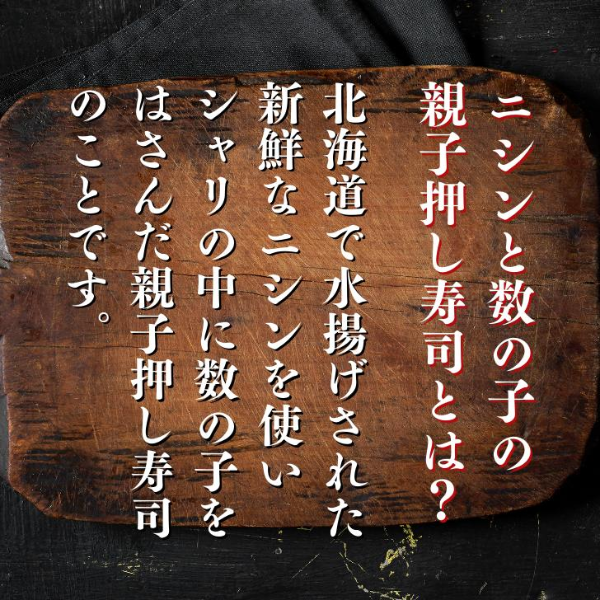 ニシンと数の子の
親子押し寿司とは？
北海道で水揚げされた
新鮮なニシンを使い
シャリの中に数の子を
はさんだ親子押し寿司
のことです。